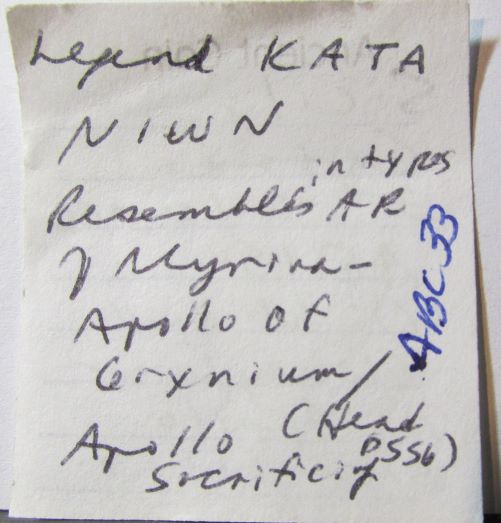 Legend KATA
NIWN
in types
Resembles AR
of Myrina-
Apollo of
Grynium/
Apollo (Head
Sacrificing P556)
ABC 33